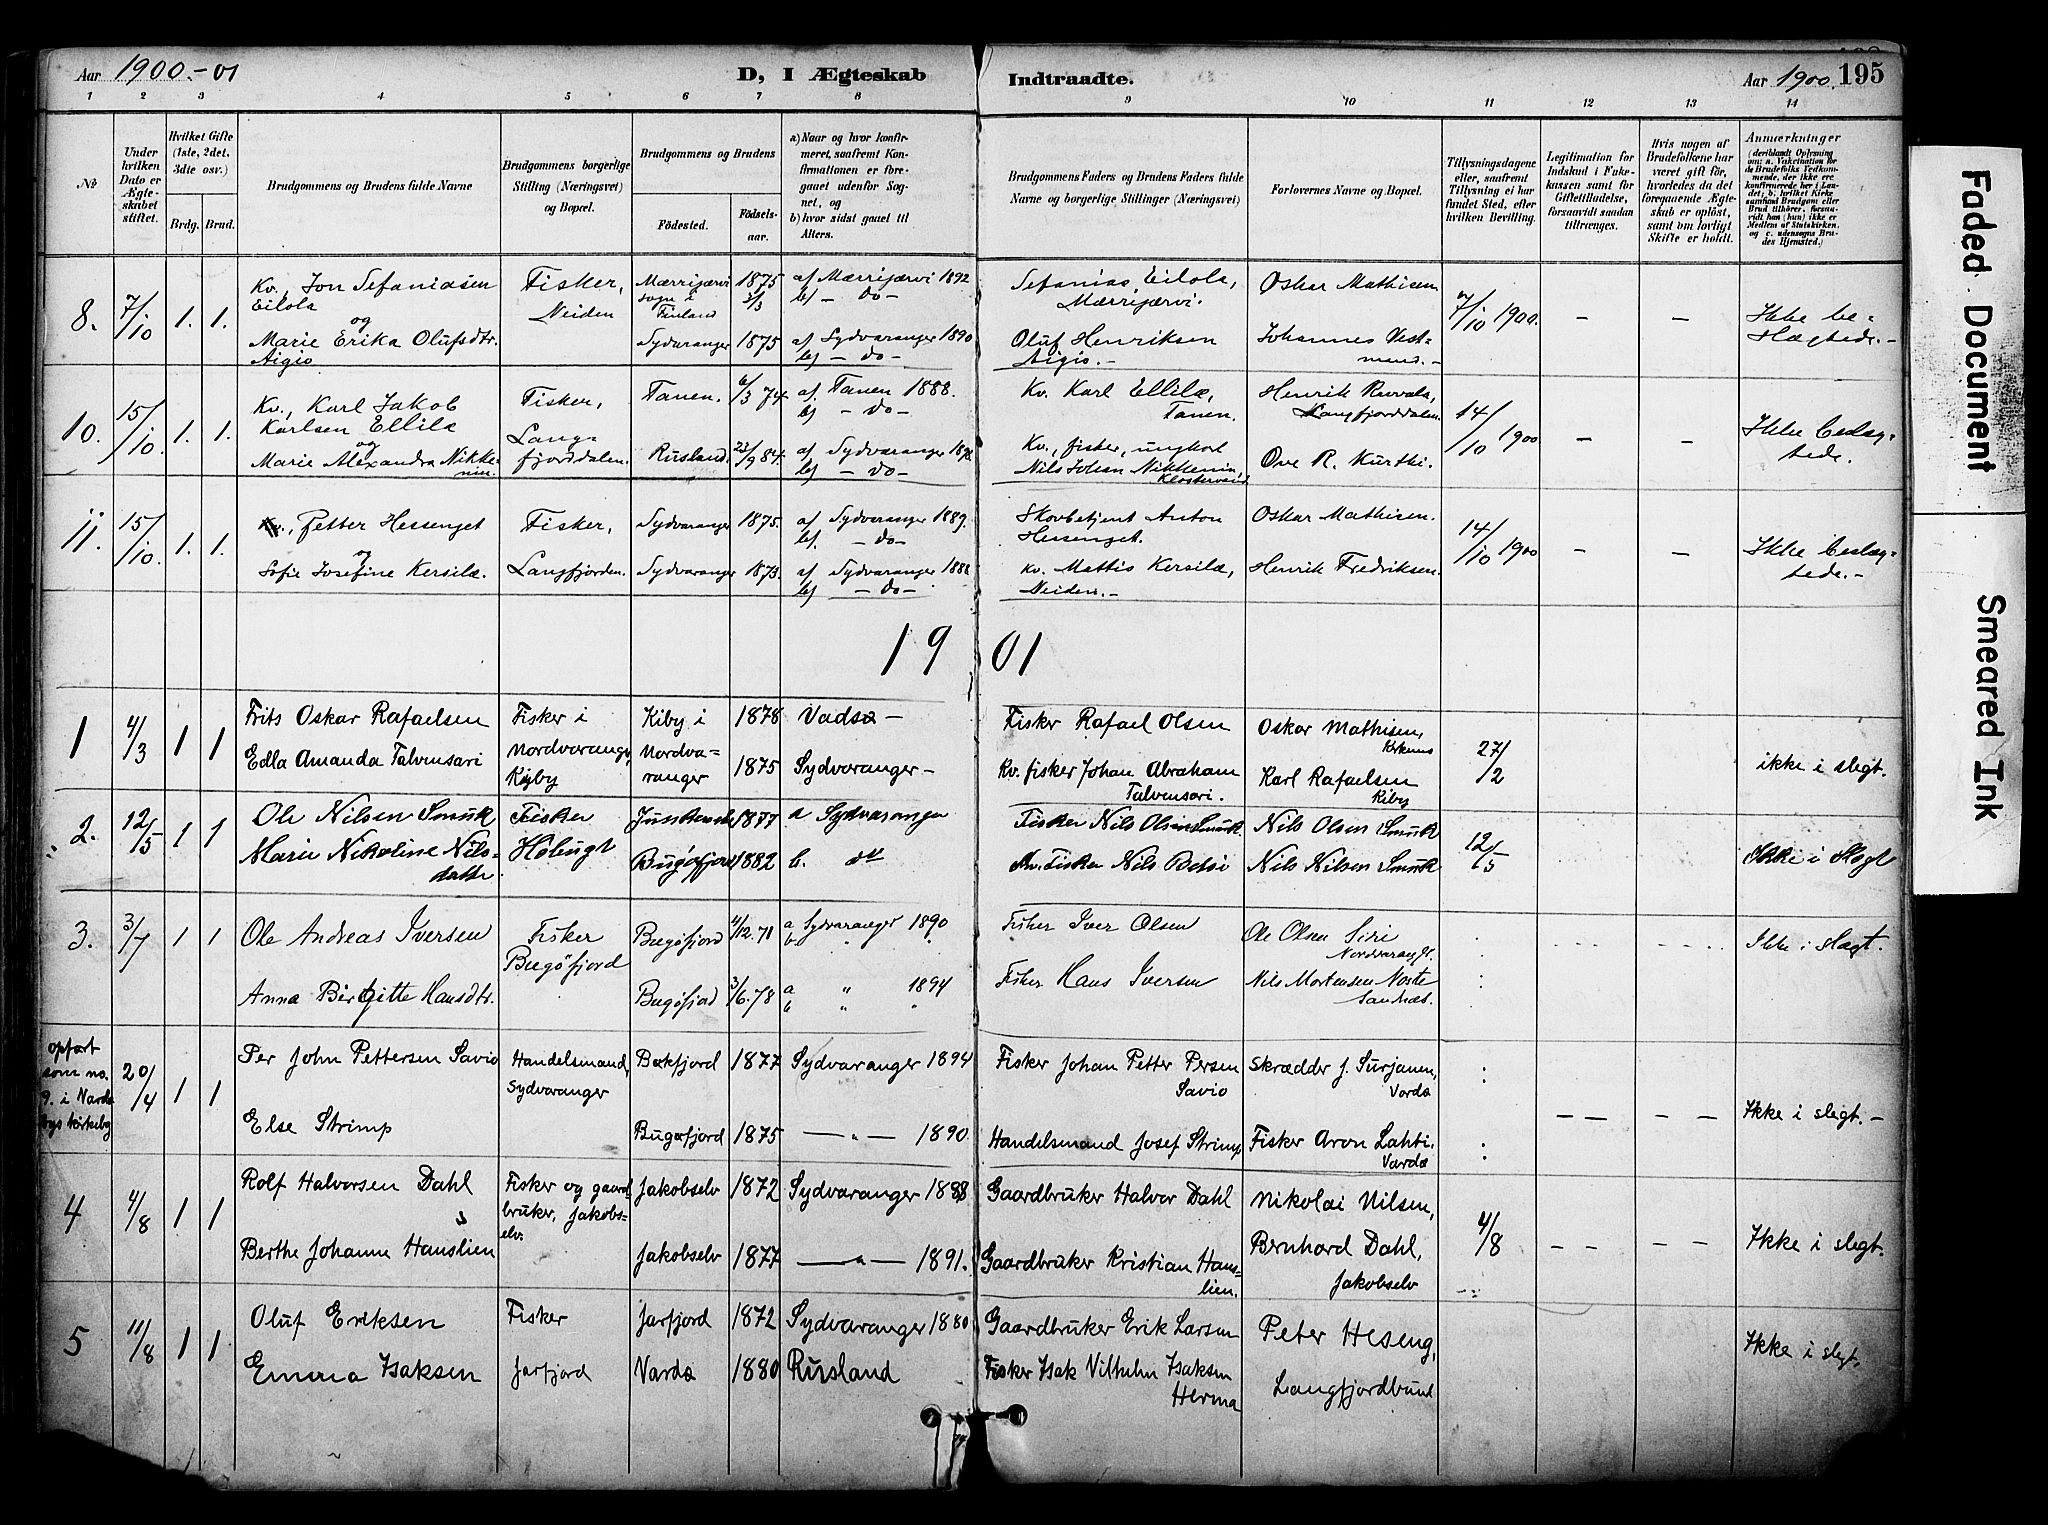 Aar 1900.-01
D, I Ægteskab Indtraadte.
Aar 1900. 195
1 2 3 4 5 6 7 8 9 10 11 12 13 14
№
Under hvilken Dato er Ægteskabet stiftet.
Hvilket Gifte (1ste, 2det, 3die osv.)
Brdg. Brud.
Brudgommens og Brudens fulde Navne
Brudgommens borgerlige Stilling (Næringsvei) og Bopæl.
Brudgommens og Brudens
Födested.
Födselsaar.
a) Naar og hvor konfirmeret, saafremt Konfirmationen er foregaaet udenfor Sognet, og
b) hvor sidst gaaet til Alters.
Brudgommens Faders og Brudens Faders fulde Navne og borgerlige Stillinger (Næringsvei)
Forlovernes Navne og Bopæl.
Tillysningsdagene eller, saafremt Tillysning ei har fundet Sted, efter hvilken Bevilling.
Legitimation for Indskud i Enkekassen samt for Giftetilladelse, forsaavidt saadan tiltrænges.
Hvis nogen af Brudefolkene har været gift før, hvorledes da det foregaaende Ægteskab er oplöst, samt om lovligt Skifte er holdt.
Anmærkninger
(deriblandt Oplysning om: a. Vakcination for de Brudefolks Vedkommende, der ikke ere konfirmerede her i Landet; b. hvilket Kirkesamfund Brudgom eller Brud tilhörer, forsaavidt han (hun) ikke er Medlem af Statskirken, og c. udensogns Brudes Hjemsted.)
8. 7/10 1. 1. Kv., Jon Sefaniasen Eilola
og
Marie Erika Olufsdtr. Aigio
Fisker, Neiden
Mærrijærvi sogn i Finland 1875 3/3 a) Mærrijærvi 1892
b) – do –
Sydvaranger 1875 a) Sydvaranger 1890
b) – do –
Sefanias Eilola, Mærrijærvi.
Oluf Henriksen Aigio. –
Oskar Mathisen
Johannes
7/10 1900. – – Ikke beslægtede. –
10. 15/10 1. 1. Kv., Karl Jakob Karlsen Ellilä
og
Marie Alexandra Nikkenin.
Fisker, Langfjorddalen.
Tanen. 6/3 74. a) Tanen 1888.
b) – do –
Rusland. 23/9 84. a) Sydvaranger
b) – do –
Kv. Karl Ellilæ, Tanen.
Kv., fisker, ungkal Nils Johan Nikkenin,
Henrik Langfjorddalen.
Ove R. Kurthi.
14/10 1900 – – Ikke beslægtede.
11. 15/10 1. 1. Kv., Petter Hessenget
og
Sofie Josefine Kersilæ.
Fisker, Langfjorden.
Sydvaranger 1875. a) Sydvaranger 1889.
b) – do –
Sydvaranger 1873. a) Sydvaranger 1888
b) – do –
Skovbetjent Anton Hessenget.
Kv. Mattis Kersilæ, Neiden. –
Oskar Mathisen.
Henrik Fredriksen.
14/10 1900 – – Ikke beslægtede. –
1901
1 4/3 1 1 Frits Oskar Rafaelsen
Edla Amanda Talvensari
Fisker i Nordvaranger, Kiby
Kiby i Nordvaranger 1878 Vadsø –
1875 Sydvaranger –
Fisker Rafael Olsen
Kv. fisker Johan Abraham Talvensari.
Oskar Mathisen, Kirkenes
Karl Rafaelsen Kiby
27/2
ikke i slegt.
2. 12/5 1 1 Ole Nilsen Smuk
Marie Nikoline Nilsdatter
Fisker Holmgt
1877 a Sydvaranger
Bugøfjord 1882 b. dtt
Fisker Nils Olsen Smuk.
Fisker Nils
Nils Olsen Smuk
Nils Nilsen Smuk
12/5
Ikke i Slægt
3. 3/7 1 1 Ole Andreas Iversen
Anna Birgitte Hansdtr.
Fisker Bugöfjord
Bugöfjord 4/12.71 a Sydvaranger 1890
b "
Bugöfjord 3/6.78 a " 1894
b " "
Fisker Iver Olsen
Fisker Hans Iversen
Ole Olsen Siri Nordvarang.
Nils Mortensen Noste Sandnes.
Ikke i slægt.
opført som no. 9. i Vardø bys kirkebog
20/4 1 1 Per John Pettersen Savio
Else Strimp
Handelsmand, Sydvaranger
Bøkfjord 1877 Sydvaranger 1894
Bugøfjord 1875 – " – 1890
Fisker Johan Petter Persen Savio
Handelsmand Josef Strimp
Skrædder J. Surjanen, Vardø
Fisker Aron Lahti, Vardø
Ikke i slegt. –
4 4/8 1 1 Rolf Halvorsen Dahl
Berthe Johanne Hanslien
Fisker og gaardbruker, Jakobselv.
Jakobselv 1872 Sydvaranger 1888
Jakobselv 1877 – " – 1891.
Gaardbruker Halvor Dahl
Gaardbruker Kristian Hanslien.
Nikolai Nilsen,
Bernhard Dahl, Jakobselv
4/8
Ikke i slegt.
5 11/8 1 1 Oluf Eriksen
Emma Isaksen
Fisker Jarfjord
Jarfjord 1872 Sydvaranger 1880
Vardø 1880 Rusland
Gaardbruker Erik Larsen
Fisker Isak Vilhelm Isaksen Herma
Peter Heseng, Langfjordbund
Ikke i slegt.
Faded Document
Smeared Ink